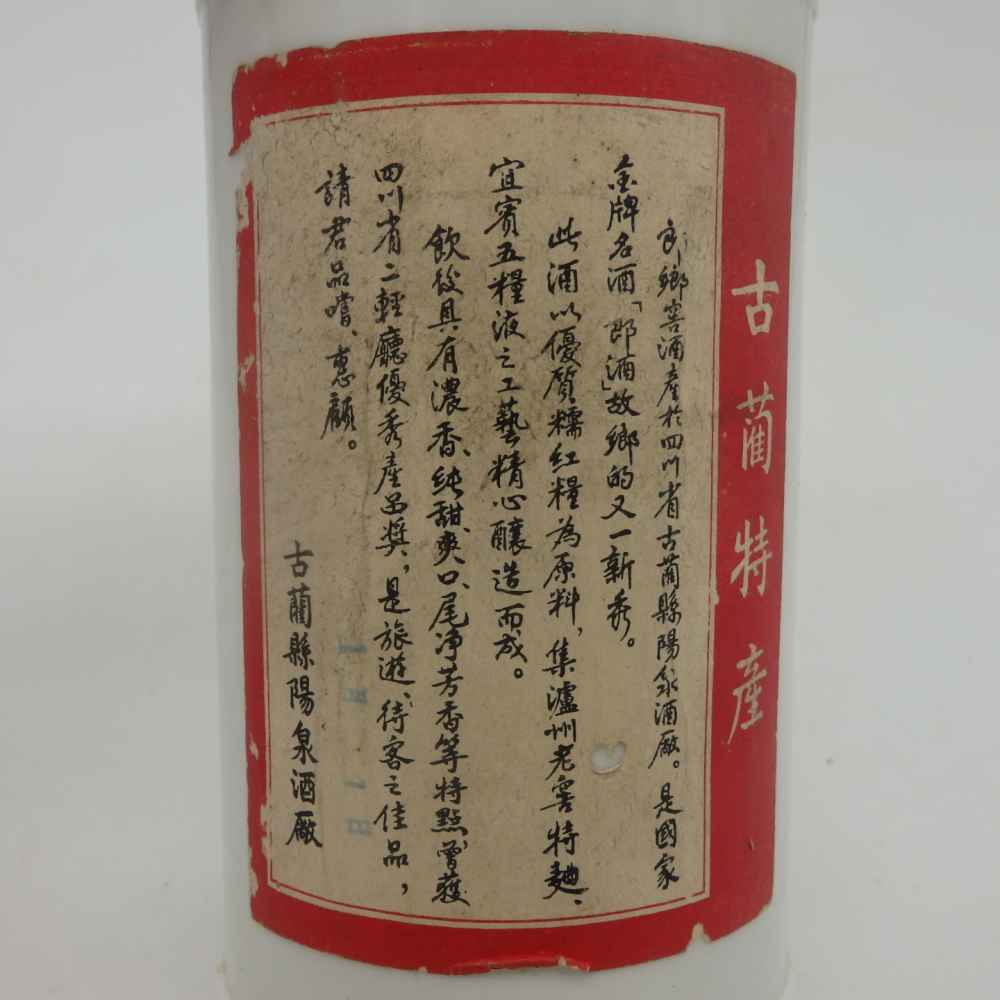 古藺特產
郎鄉窖酒產於四川省古藺縣陽泉酒廠。是國家
金牌名酒「郎酒」故鄉的又一新秀。
此酒以優質糯紅糧為原料，集瀘州老窖特麯、
宜賓五糧液之工藝精心釀造而成。
飲後具有濃香、純甜、爽口、尾净芳香等特點，曾獲
四川省二輕廳優秀產品獎，是旅遊、待客之佳品，
請君品嚐、惠顧。
古藺縣陽泉酒廠